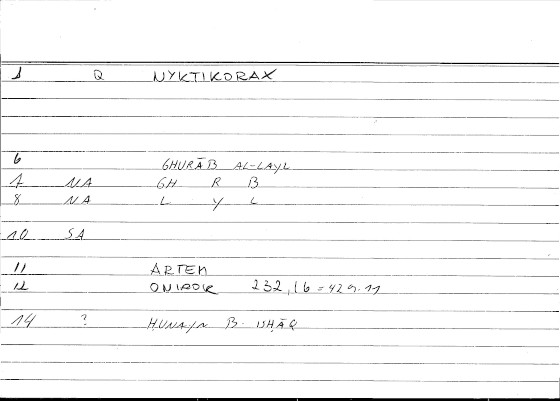 1 Q NYKTIKORAX
6 GHURĀB AL-LAYL
7 NA GH R B
8 NA L Y L
10 SA
11 ARTEM
12 ONIROK 232,16 = 429.11
14 ? HUNAYN B. ISHĀQ